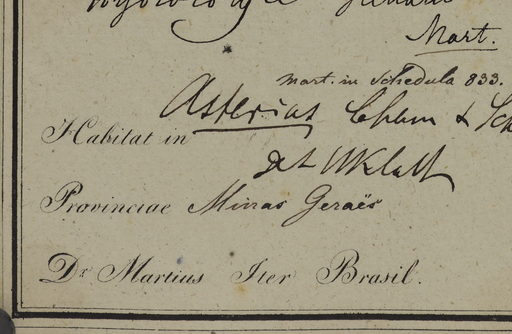 Mart.
Mart. in Schedula 833.
Asterias Cham & Sch
Habitat in
det WKlatt
Provinciae Minas Geraës
Dr. Martius Iter Brasil.